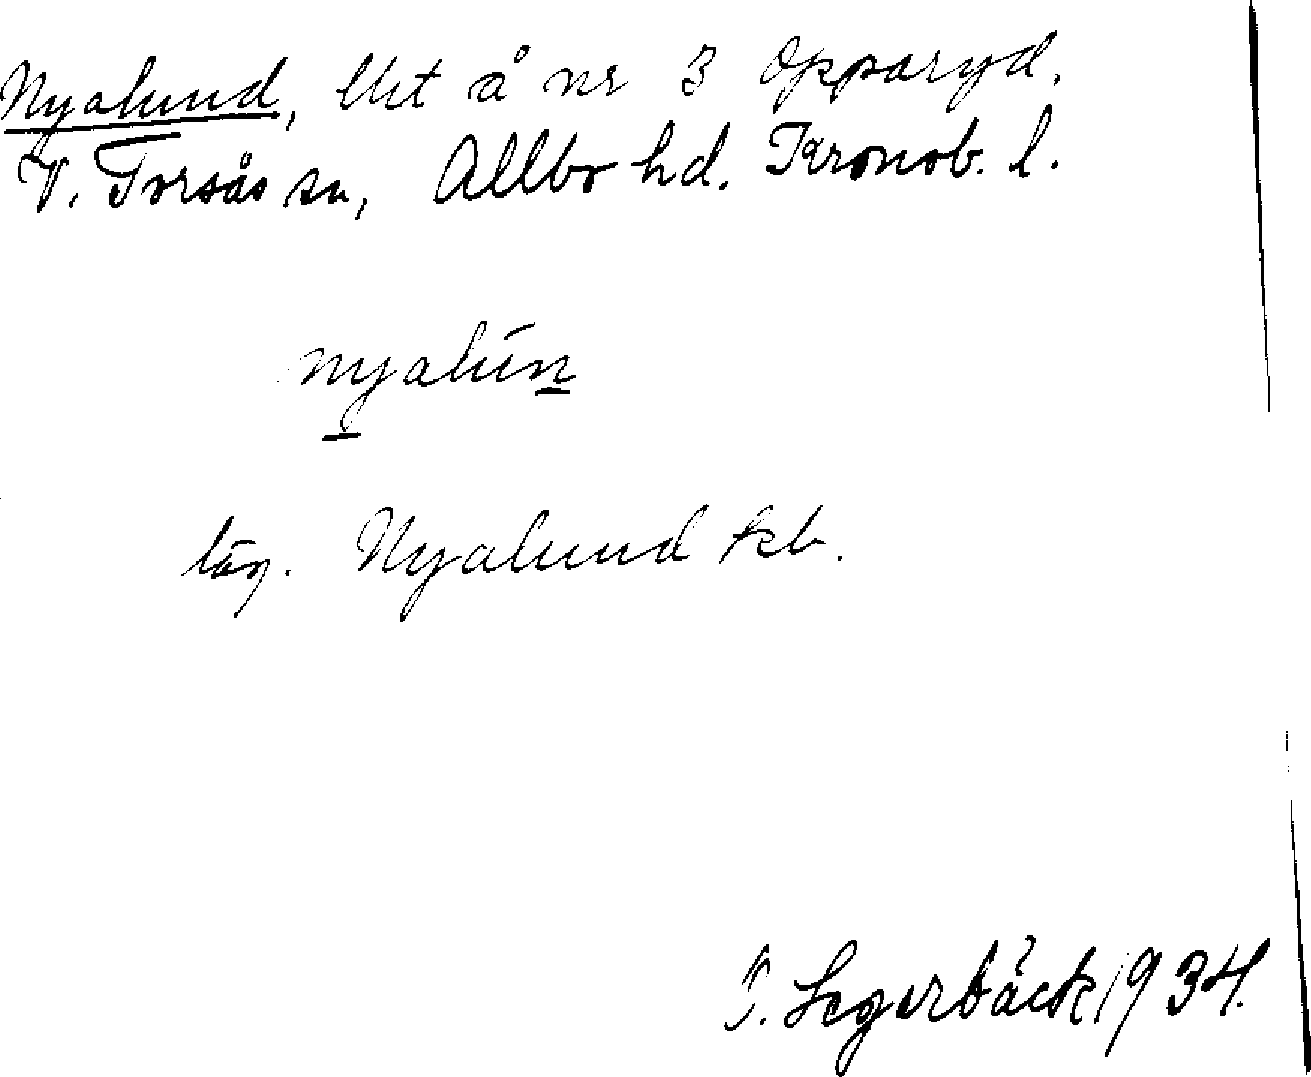 Nyalund, lht å nr 3 Opparyd.
V. Torsås sn, Allbo hd. Kronob. l.
nyalún
läg. Nyalund kb.
J. Segerbäck 1934.